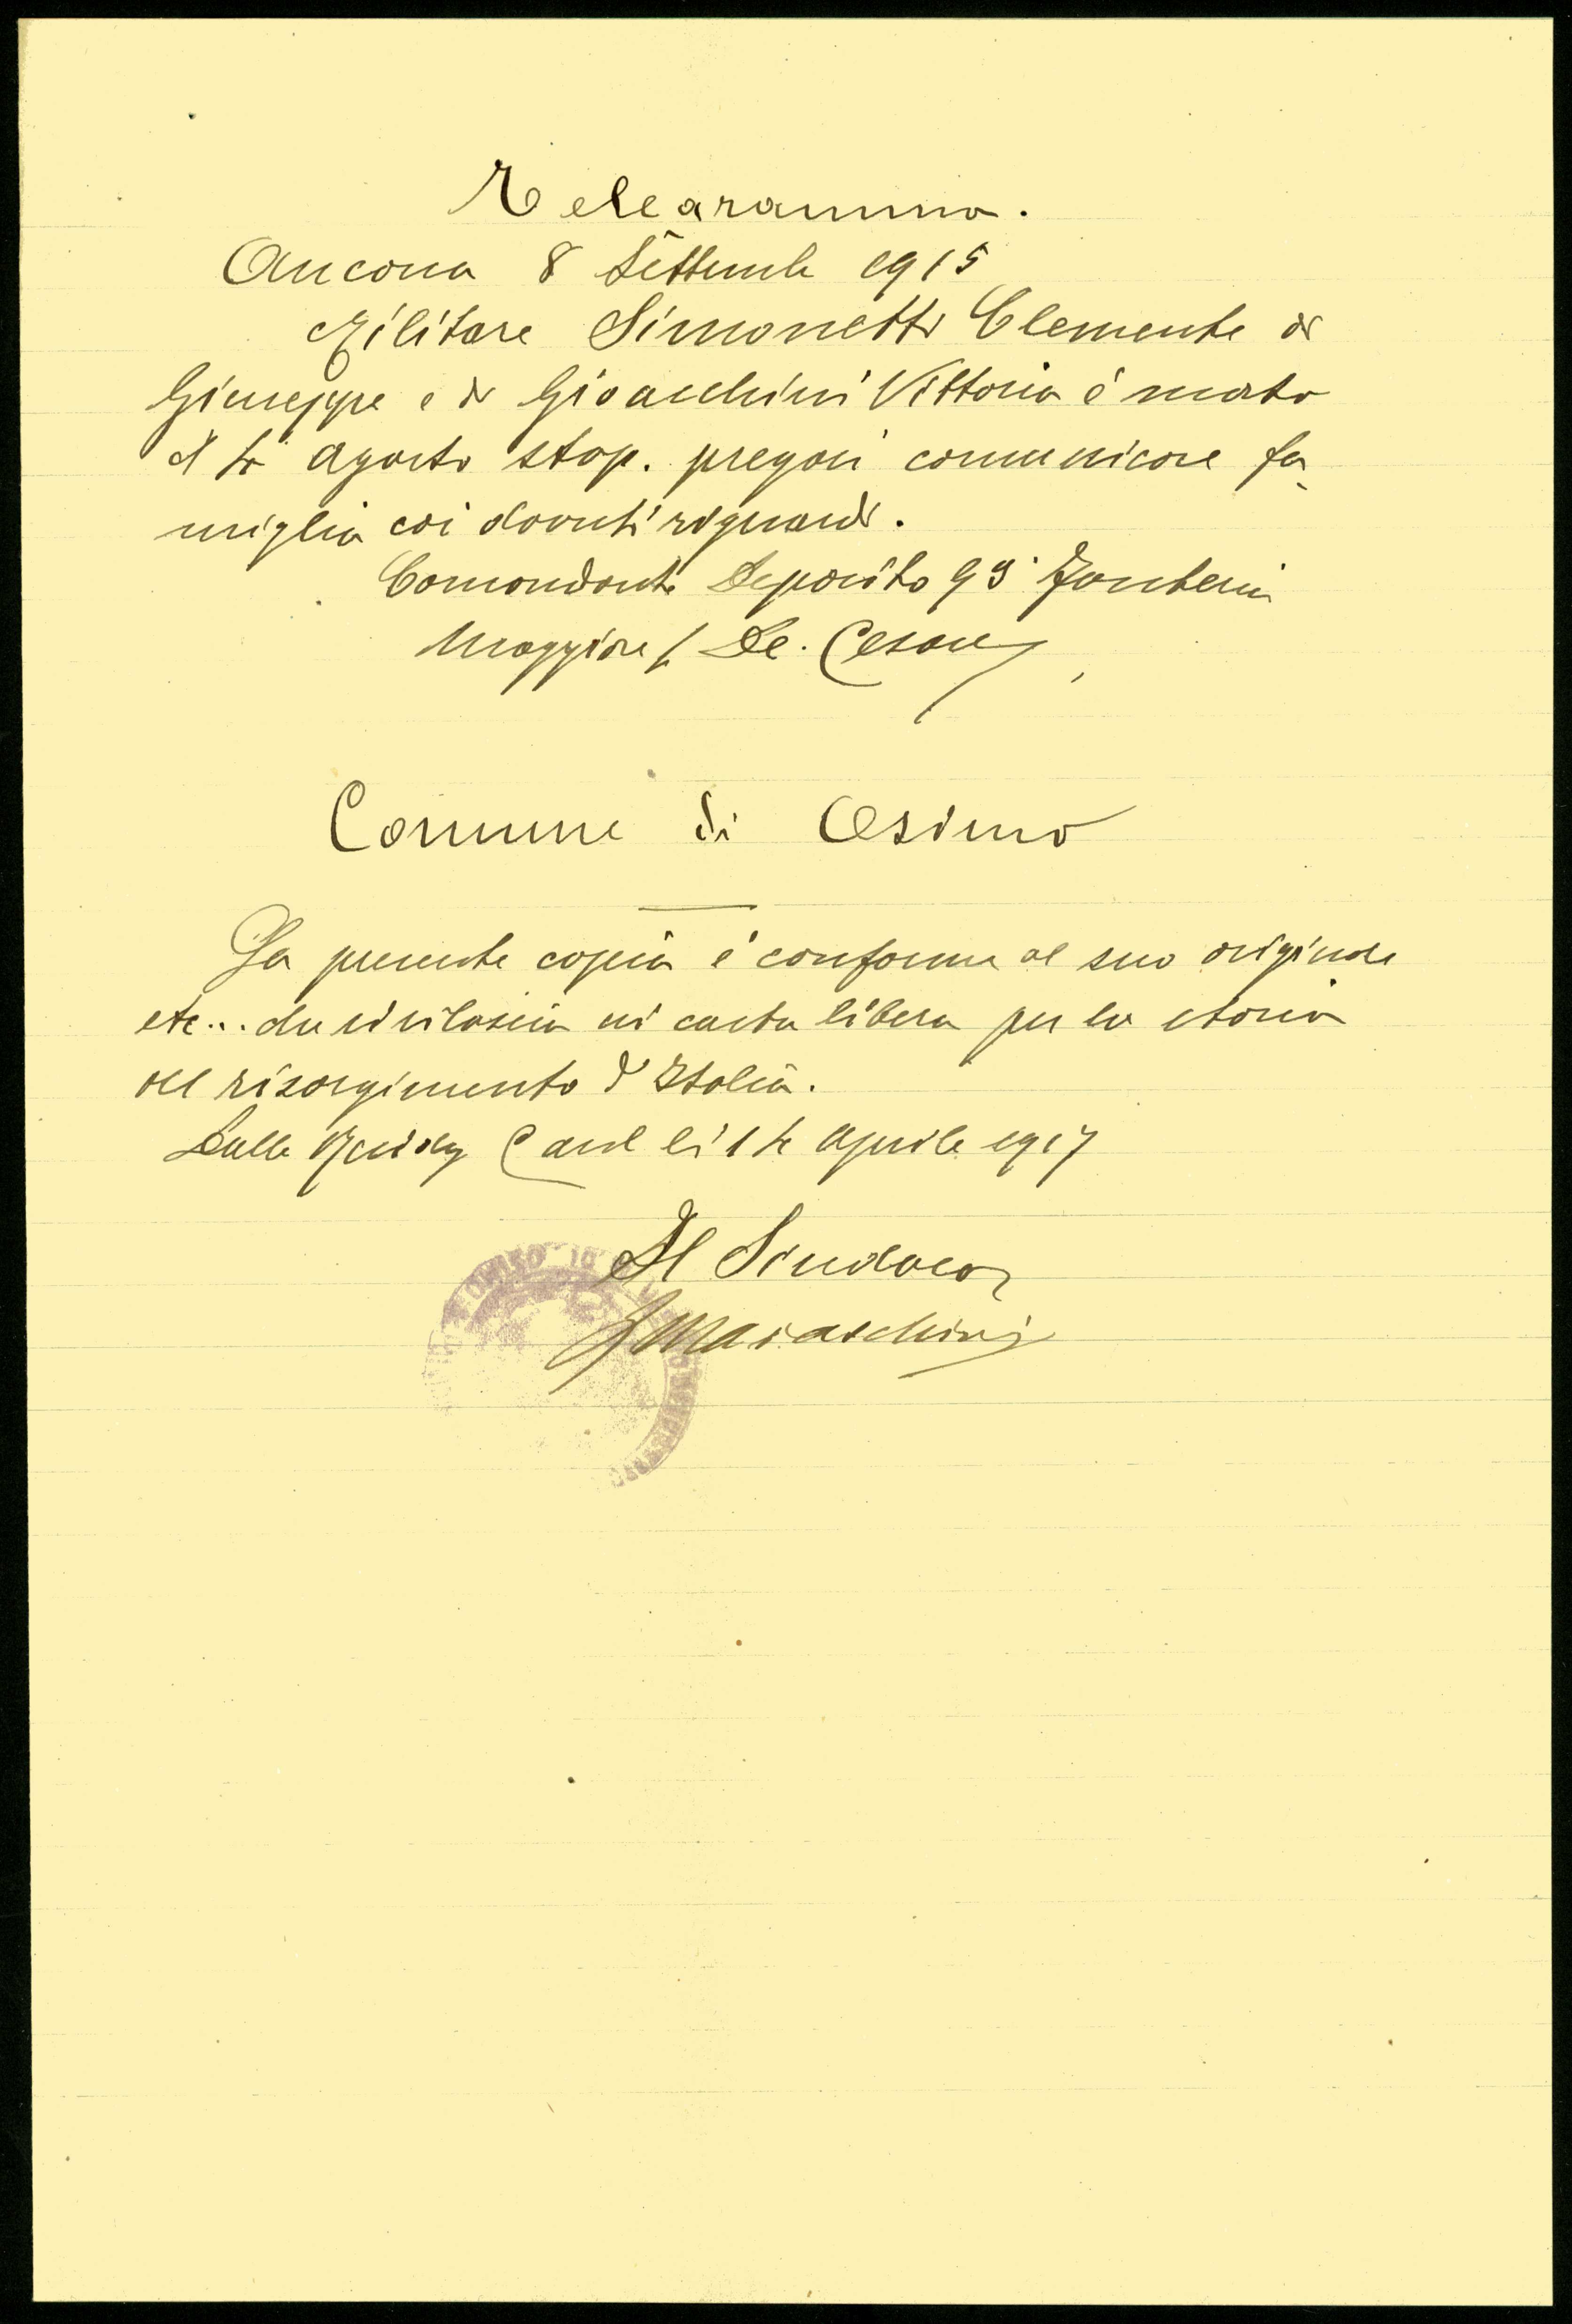 Telegramma.
Ancona 8 Settembre 1915
Militare Simonetti Clemente di
Giuseppe e di Gioacchini Vittoria è morto
il 4 agosto stop. pregasi comunicare fa
miglia coi dovuti riguardi.
Comandante Deposito 93° Fanteria
Maggiore f. De. Cesare
Comune di Osimo
La presente copia è conforme al suo originale
etc... che si rilascia in carta libera per la storia
del risorgimento d'Italia.
Dalla Resid. Com. li 14 Aprile 1917
Il Sindaco